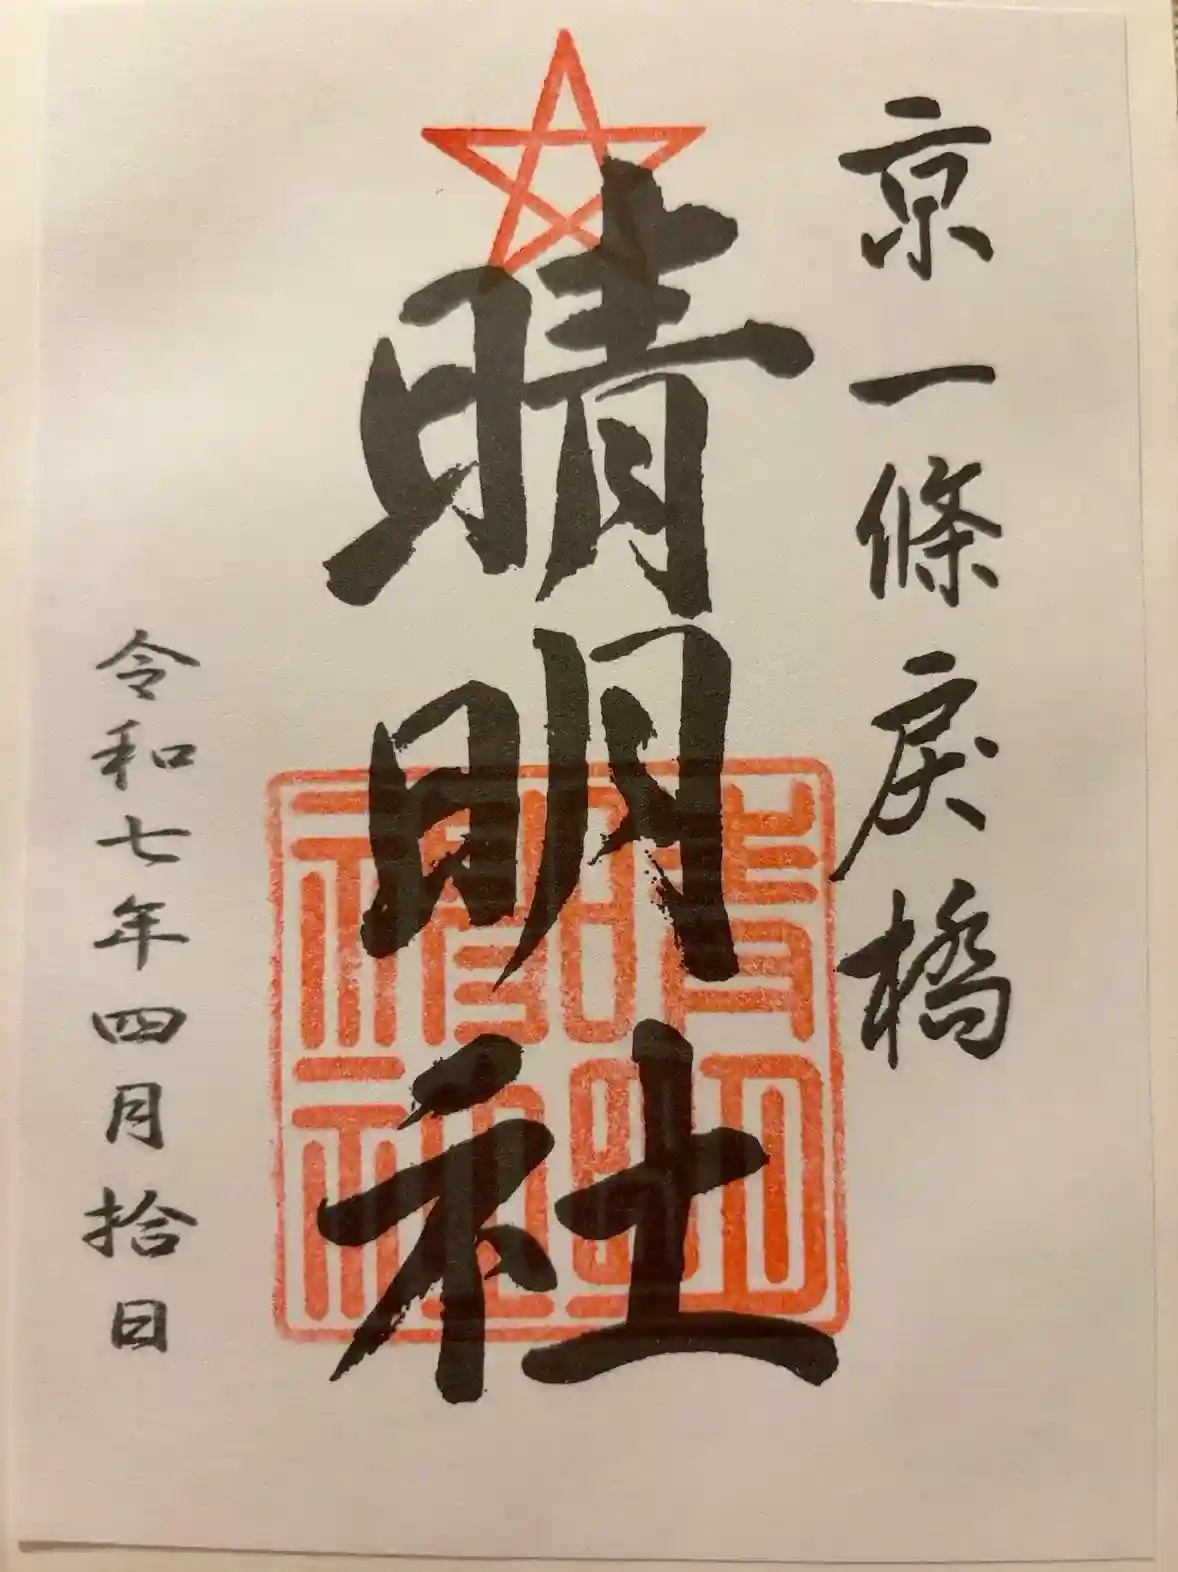 京一條戻橋
晴明社
晴明神社
令和七年四月拾日